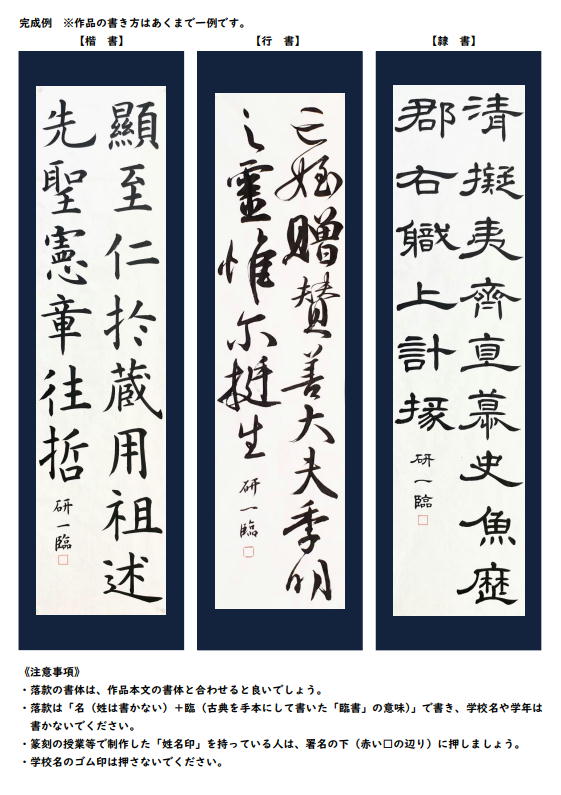 完成例　※作品の書き方はあくまで一例です。
【楷　書】
顯至仁於蔵用祖述
先聖憲章往哲
研一臨
【行　書】
亡姪贈賛善大夫季明
之霊惟尓挺生
研一臨
【隷　書】
清擬夷齊直慕史魚歴
郡右職上計掾
研一臨
《注意事項》
・落款の書体は、作品本文の書体と合わせると良いでしょう。
・落款は「名（姓は書かない）＋臨（古典を手本にして書いた「臨書」の意味）」で書き、学校名や学年は
書かないでください。
・篆刻の授業等で制作した「姓名印」を持っている人は、署名の下（赤い□の辺り）に押しましょう。
・学校名のゴム印は押さないでください。